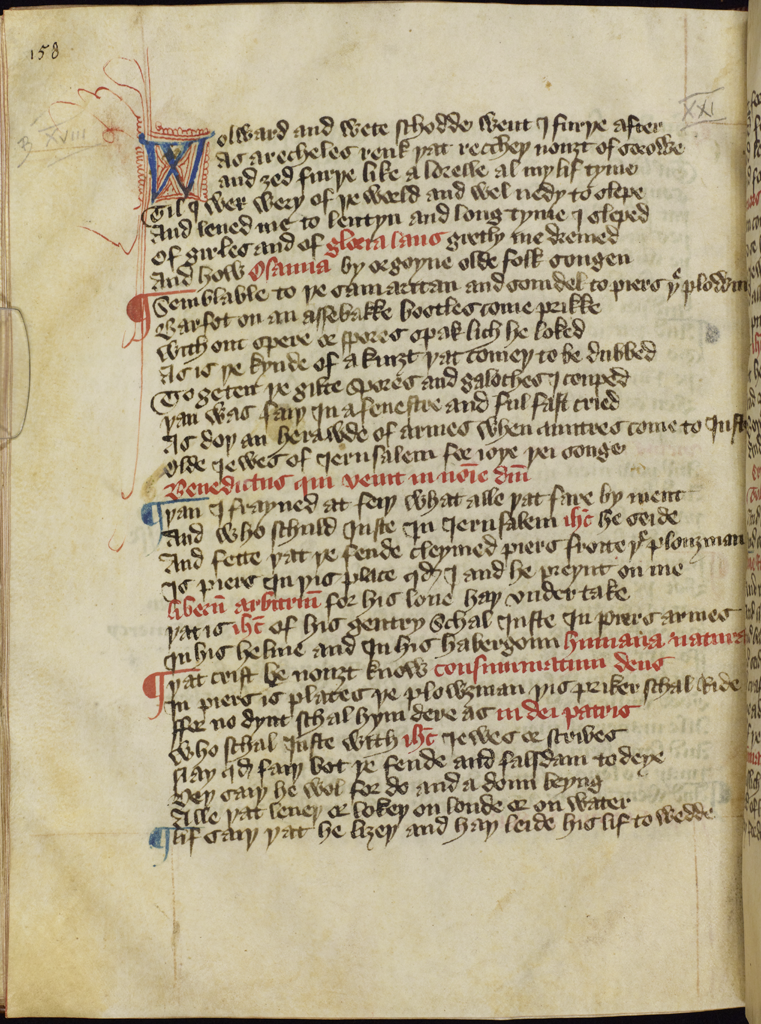 158
B XVIII
XXI
Wolward and wete schodde went I furþe after
As a recheles renk þat reccheþ nouȝt of sorowe
and ȝed furþe like a lorelle al my lif tyme
Til I wex wery of þe world and wel nedy to slepe
And lened me to lentyn and long tyme I sleped
Of girles and of gloria laus gretly me dremed
And how Osanna by orgoyne olde folk songen
Semblable to þe samaritan and somdel to piers þe plowman
Barfot on an assebakke bootles come prikke
With out spere or spores spaklich he loked
As is þe kynde of a knyȝt þat comeþ to be dubbed
To geten þe gilte spores and galoches I couped
þan was faiþ In a fenestre and ful fast cried
As doþ an herawde of armes when auntres come to Juste
Olde Jewes of Jerusalem for ioye þei songe
Benedictus qui venit in noīe dñi
þan I frayned at feiþ what alle þat fare by ment
And who schuld Juste In Jerusalem ihc he seide
And fette þat þe fende cleymed piers frotte þe plouȝman
Is piers In þis place qd I and he preynt on me
liberū arbitriū for his loue haþ vnder take
þat is ihc of his gentry Schal Juste In piers armes
In his helme and In his habergoun humana natura
þat crist be nouȝt know consummatum deus
In piers is plates þe plowȝman þis priker schal Ride
ffor no dynt schal hym dere as in dei patris
Who schal Juste with ihc Jewes or scriues
Nay qd faiþ bot þe fende and falsdam to deye
Deþ saiþ he wol for do and a doun beyng
Alle þat leueþ or lokeþ on londe or on water
Lif saiþ þat he liȝeþ and haþ leide his lif to wedde